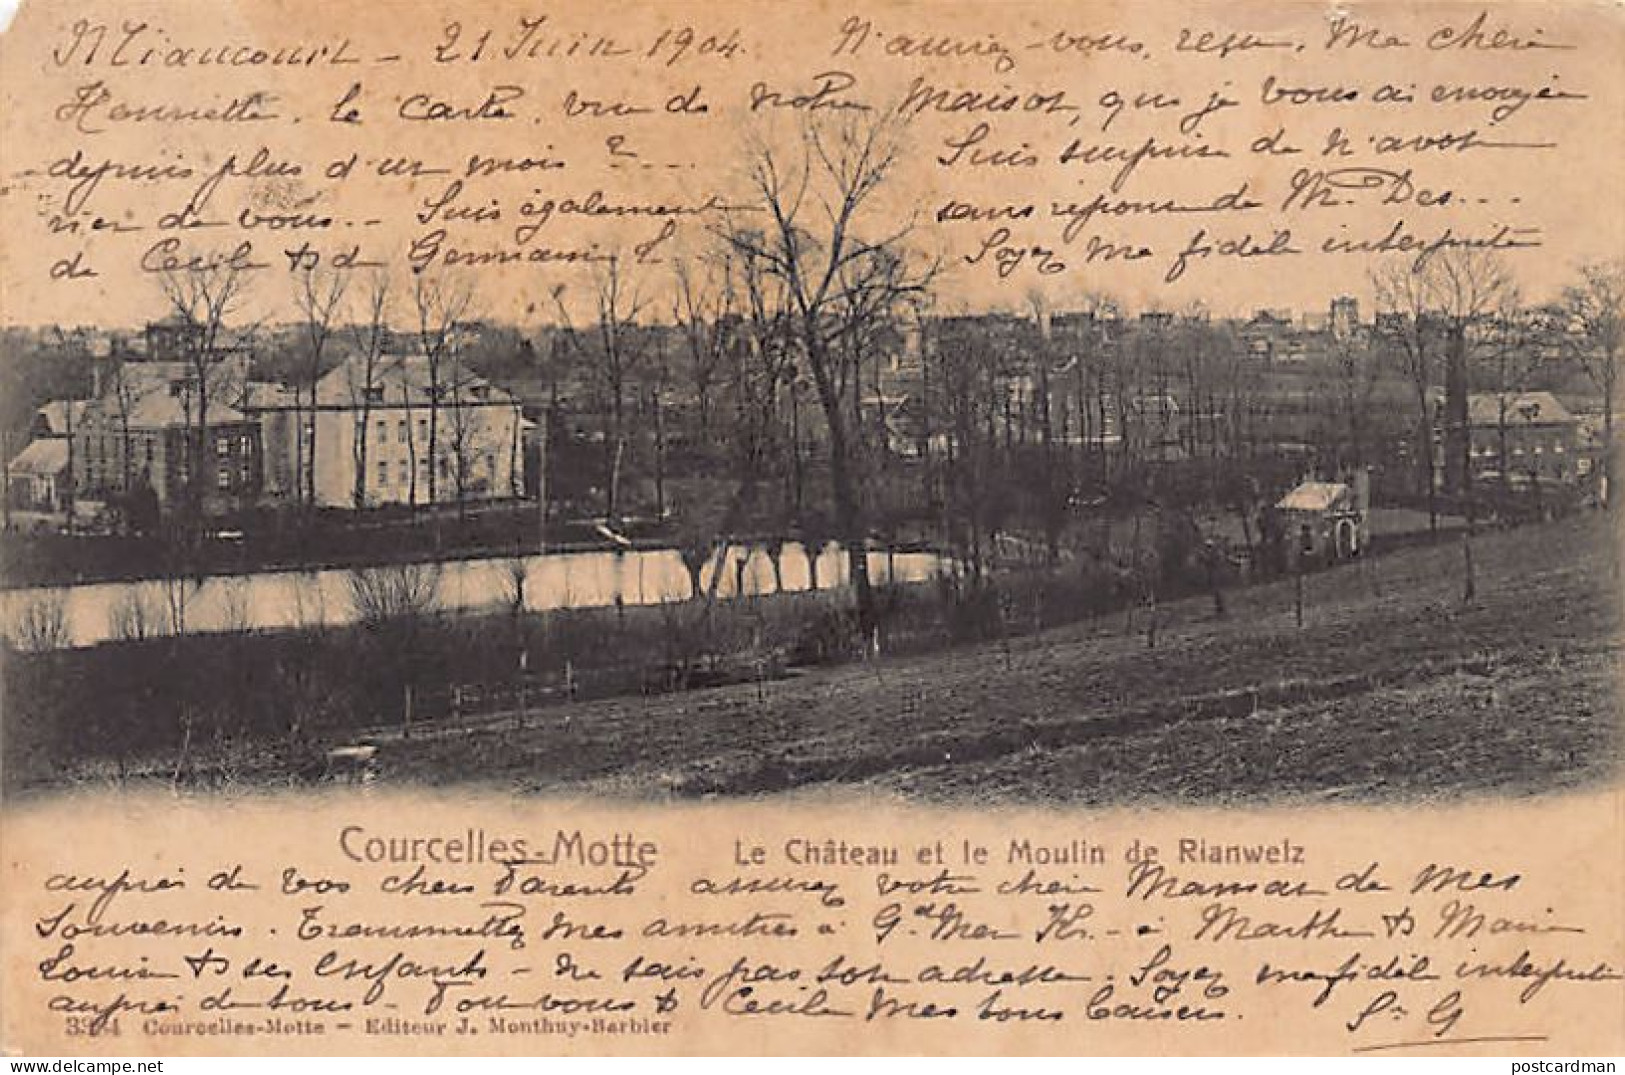 Miaucourt - 21 Juin 1904. N'auriez-vous, reçu, Ma chère
Henriette, la carte, vue de notre Maison, que je vous ai envoyée
depuis plus d'un mois ? - - . Suis surprise de n'avoir
rien de vous. - Suis également sans réponse de M. Des...
de Cécile & de Germaine L. Soyez ma fidèle interprète
Courcelles-Motte Le Château et le Moulin de Rianwelz
auprès de vos chers Parents, assurez votre chère Maman de mes
Souvenirs. Transmettez mes amitiés à Gd Mer - à Marthe & Marie
Louise & ses Enfants - ne sais pas son adresse. Soyez ma fidèle interprète
auprès de tous - Pour vous & Cécile mes bons baisers. Sr G
Courcelles-Motte - Editeur J. Monthuy-Barbier
postcardman